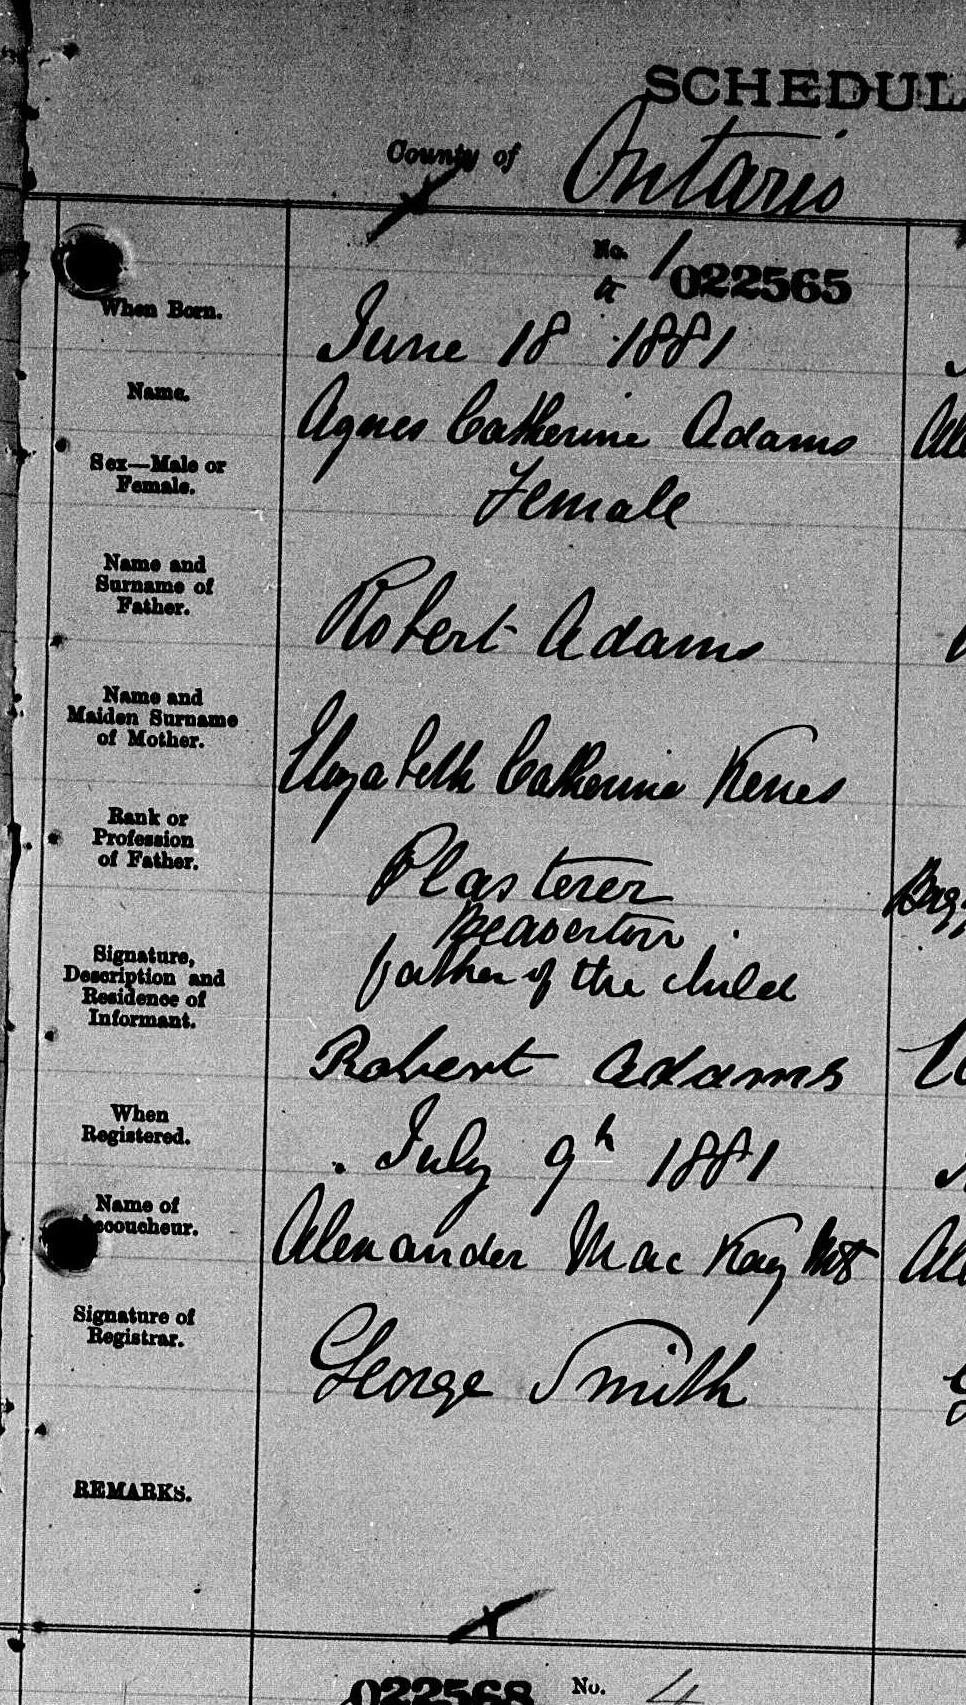 SCHEDUL
County of Ontario
No. 1
022565
When Born.
June 18 1881
Name.
Agnes Catherine Adams
Sex—Male or
Female.
Female
Name and
Surname of
Father.
Robert Adams
Name and
Maiden Surname
of Mother.
Elizabeth Catherine
Rank or
Profession
of Father.
Plasterer
Signature,
Description and
Residence of
Informant.
Beaverton
father of the child
Robert Adams
When
Registered.
July 9th 1881
Name of
ccoucheur.
Alexander Mac Kay
Signature of
Registrar.
George Smith
REMARKS.
022568 No. 4